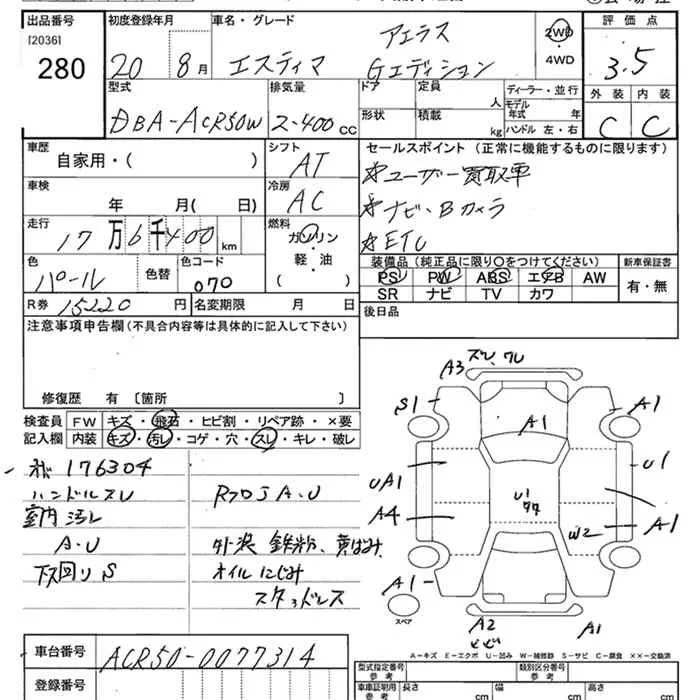 出品番号 初度登録年月 車名・グレード 評価点
[2036] 280 20 8月 エスティマ アエラス Gエディション 2WD・4WD 3.5
型式 排気量 ドア 定員 人 ディーラー・並行 外装 内装
DBA-ACR50W 2-400cc 形状 積載 kg モデル年式 年 ハンドル 左・右 C C
車歴 シフト セールスポイント (正常に機能するものに限ります)
自家用・( ) AT ☆ユーザー買取車
車検 冷房
年 月( 日) AC ☆ナビ、Bカメラ
走行 燃料
17万6千400km ガソリン・軽・油 ( ) ☆ETC
色 色替 色コード 装備品 (純正品に限り〇をつけてください) 新車保証書
パール 070 PS PW ABS エアB AW 有・無
SR ナビ TV カワ
R券 15220円 名変期限 月 日 後日品
注意事項申告欄(不具合内容等は具体的に記入して下さい)
修復歴 有 〔箇所 〕
検査員 FW キズ・飛石・ヒビ割・リペア跡・×要
記入欄 内装 キズ・汚レ・コゲ・穴・スレ・キレ・破レ
176304
ハンドルスレ RフロJ A・U
室内汚レ
A・U 外装 鉄粉、黄ばみ
下回りS オイルにじみ
スタッドレス
A3 ズレ,ワレ
S1 A1 A1
UA1 U1
A4 U1 W2 A1
A1
スペア A2 A1
A-キズ E-エクボ U-凹み W-補修跡 S-サビ C-腐食 ××-交換済
車台番号 ACR50-0077314 型式指定番号 参考 類別区分番号 参考
登録番号 車車証明用 参考 長さ cm 幅 cm 高さ cm